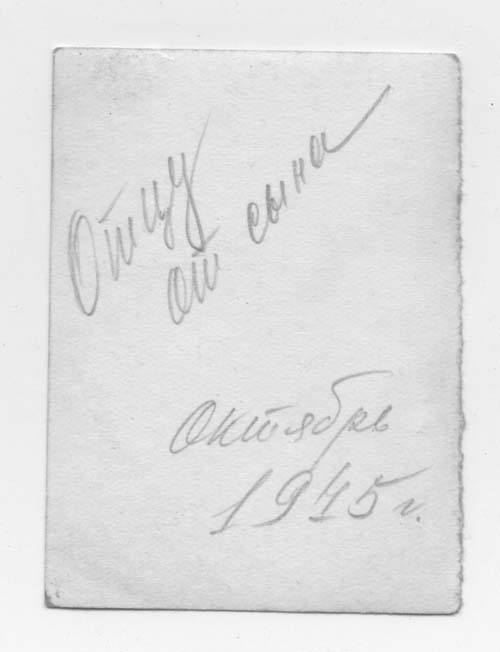 Отцу
от сына
Октябрь
1945 г.